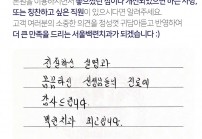 본원을 이용하시면서 좋았던 점이나 개선되었으면 하는 사항,
또는 칭찬하고 싶은 직원이 있으시다면 알려주세요.
고객 여러분의 소중한 의견을 정성껏 귀담아듣고 반영하여
더 큰 만족을 드리는 서울백련치과가 되겠습니다 :)
친절하신 설명과
꼼꼼하신 선생님들의 진료에
감사드립니다.
백련치과 최고입니다.